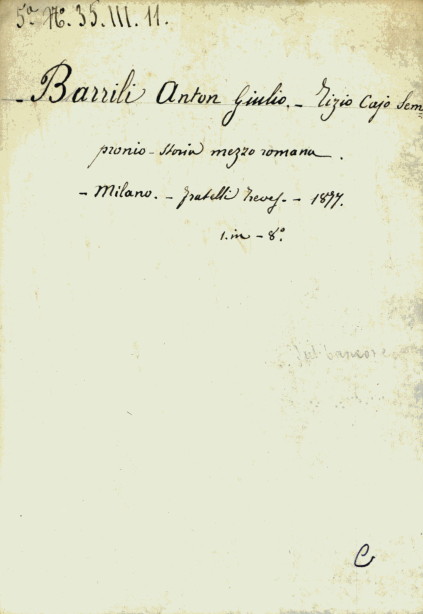 5ª N.º 35.III.11.
Barrili Anton Giulio. - Tizio Cajo Sem=
pronio - Storia mezzo romana.
- Milano. - fratelli Treves. - 1877.
1. in - 8º.
C